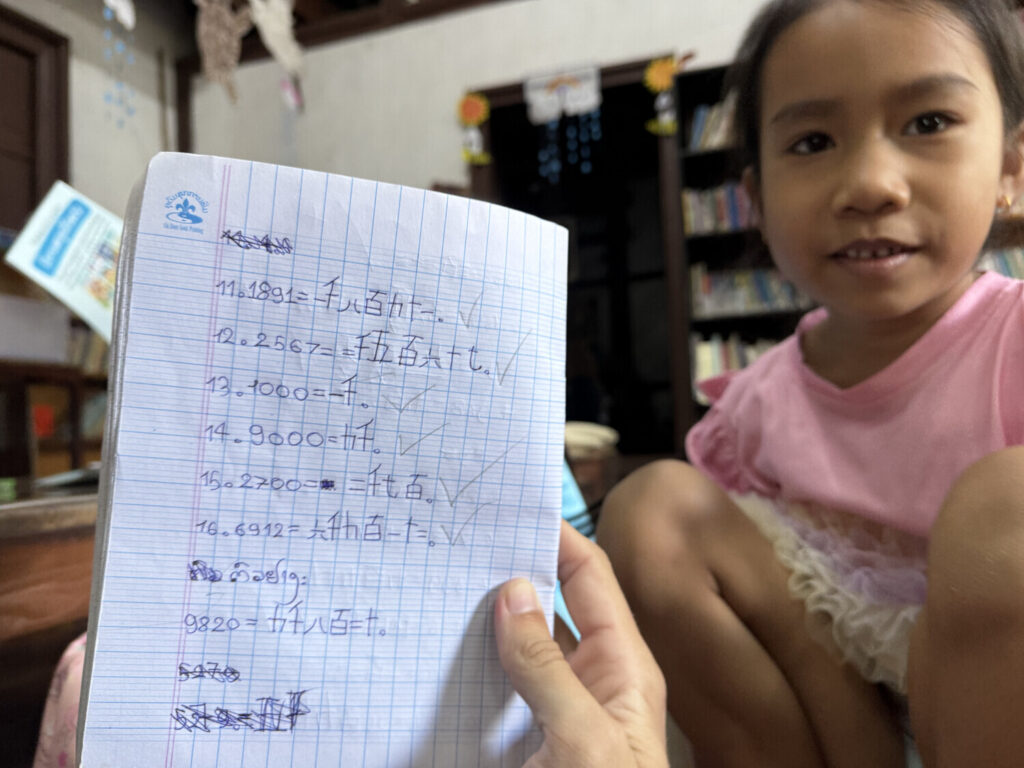 11. 1891 = 一千八百九十一。
12. 2567 = 二千五百六十七。
13. 1000 = 一千。
14. 9000 = 九千。
15. 2700 = 二千七百。
16. 6912 = 六千九百一十二。
9820 = 九千八百二十。